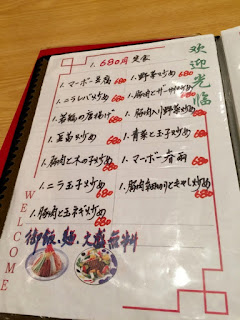 1. 680円 定食
1. マーボー豆腐 680
1. ニラレバ炒め 680
1. 若鶏の唐揚げ 680
1. 豆苗炒め 680
1. 豚肉と木の子炒め 680
1. ニラ玉子炒め 680
1. 豚肉と玉ネギ炒め 680
1. 野菜炒め 680
1. 豚肉とザーサイ炒め 680
1. 豚肉入り野菜炒め 680
1. 青菜と玉子炒め 680
1. マーボー春雨 680
1. 豚肉細切りともやし炒め 680
御飯・麺・大盛無料
欢迎光临
WELCOME